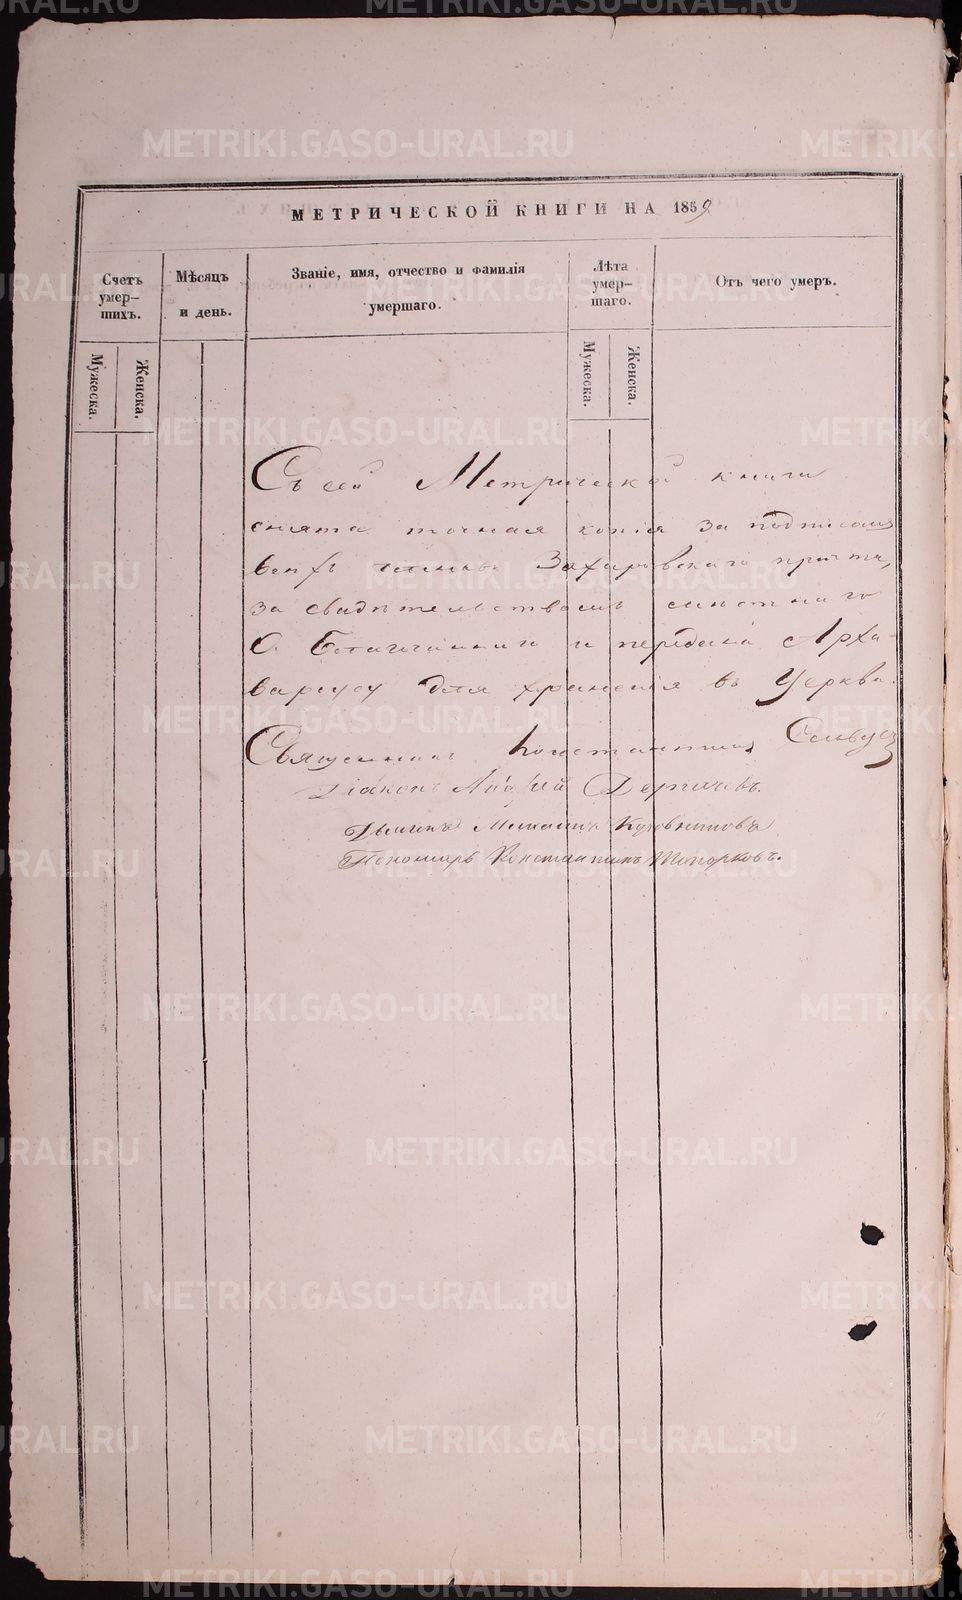 МЕТРИЧЕСКОЙ КНИГИ НА 1859
Счетъ умер-шихъ.
Мѣсяцъ и день.
Званіе, имя, отчество и фамилія умершаго.
Лѣта умер-шаго.
Отъ чего умеръ.
Мужеска.
Женска.
Мужеска.
Женска.
Съ сей Метрической книги
снята точная копія за подписомъ
всехъ Захаровскаго причта,
за свидѣтельствомъ
О. Благочиннаго и передана Арха-
варіусу для храненія въ Церкви.
Священникъ Константинъ
Діаконъ Андрей
Дьячекъ Михаилъ
Пономарь Константинъ Топорковъ.
METRIKI.GASO-URAL.RU